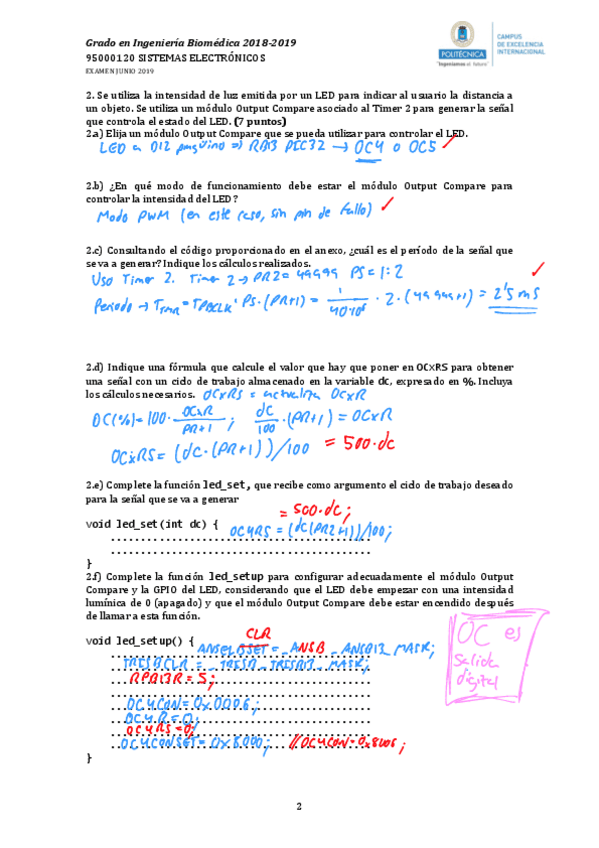 Grado en Ingeniería Biomédica 2018-2019
95000120 SISTEMAS ELECTRÓNICOS
EXAMEN JUNIO 2019
POLITÉCNICA
"Ingeniamos el futuro"
CAMPUS
DE EXCELENCIA
INTERNACIONAL
2. Se utiliza la intensidad de luz emitida por un LED para indicar al usuario la distancia a
un objeto. Se utiliza un módulo Output Compare asociado al Timer 2 para generar la señal
que controla el estado del LED. (7 puntos)
2.a) Elija un módulo Output Compare que se pueda utilizar para controlar el LED.
LED a D12 pinguino => RB13 PIC32 → OC4 o OC5 ✓
2.b) ¿En qué modo de funcionamiento debe estar el módulo Output Compare para
controlar la intensidad del LED?
Modo PWM (en este caso, sin pin de fallo) ✓
2.c) Consultando el código proporcionado en el anexo, ¿cuál es el período de la señal que
se va a generar? Indique los cálculos realizados.
Uso Timer 2. Timer 2 → PR2 = 49999 PS = 1:2 ✓
Periodo → TTMR = TPBCLK · PS · (PR+1) = 1/40·10⁶ · 2 · (49999+1) = 2'5 mS
2.d) Indique una fórmula que calcule el valor que hay que poner en OCxRS para obtener
una señal con un ciclo de trabajo almacenado en la variable dc, expresado en %. Incluya
los cálculos necesarios. OCxRS = actualiza OCxR
DC(%) = 100 · OCxR/PR+1 ; dc/100 · (PR+1) = OCxR
OCxRS = (dc · (PR+1))/100 = 500·dc
2.e) Complete la función led_set, que recibe como argumento el ciclo de trabajo deseado
para la señal que se va a generar
= 500·dc;
void led_set(int dc) {
OC4RS = (dc(PR2+1))/100;
}
2.f) Complete la función led_setup para configurar adecuadamente el módulo Output
Compare y la GPIO del LED, considerando que el LED debe empezar con una intensidad
lumínica de 0 (apagado) y que el módulo Output Compare debe estar encendido después
de llamar a esta función.
OC es
Salida
digital
CLR
void led_setup() {
ANSELBSET = _ANSB_ANSB13_MASK;
TRISBCLR = _TRISB_TRISB13_MASK;
RPB13R = 5;
OC4CON = 0x0006;
OC4R = 0;
OC4RS = 0;
OC4CONSET = 0x8000; //OC4CON = 0x8006;
}
2